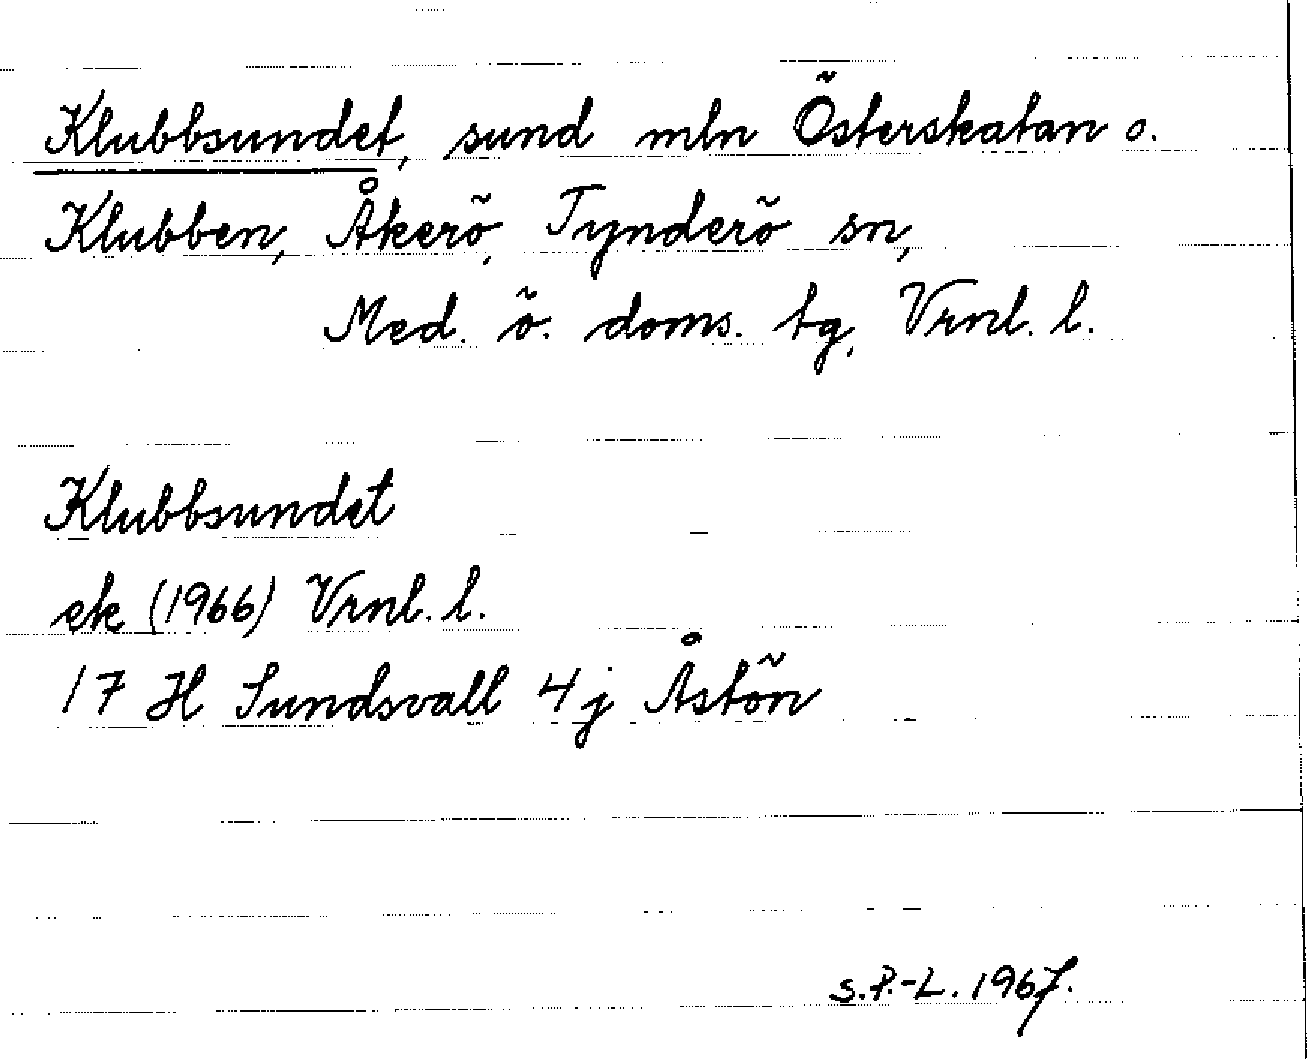 Klubbsundet, sund mln Österskatan o.
Klubben, Åkerö, Tynderö sn,
Med. ö. doms. tg, Vrnl. l.
Klubbsundet
ek (1966) Vrnl. l.
17 H Sundsvall 4j Åstön
S.P.-L. 1967.